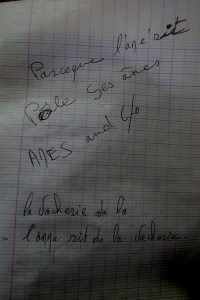 Parceque l'âne rit
Pôle ses ânes
AMES and Co
la vacherie de la
- l'anne rit de la vacherie.